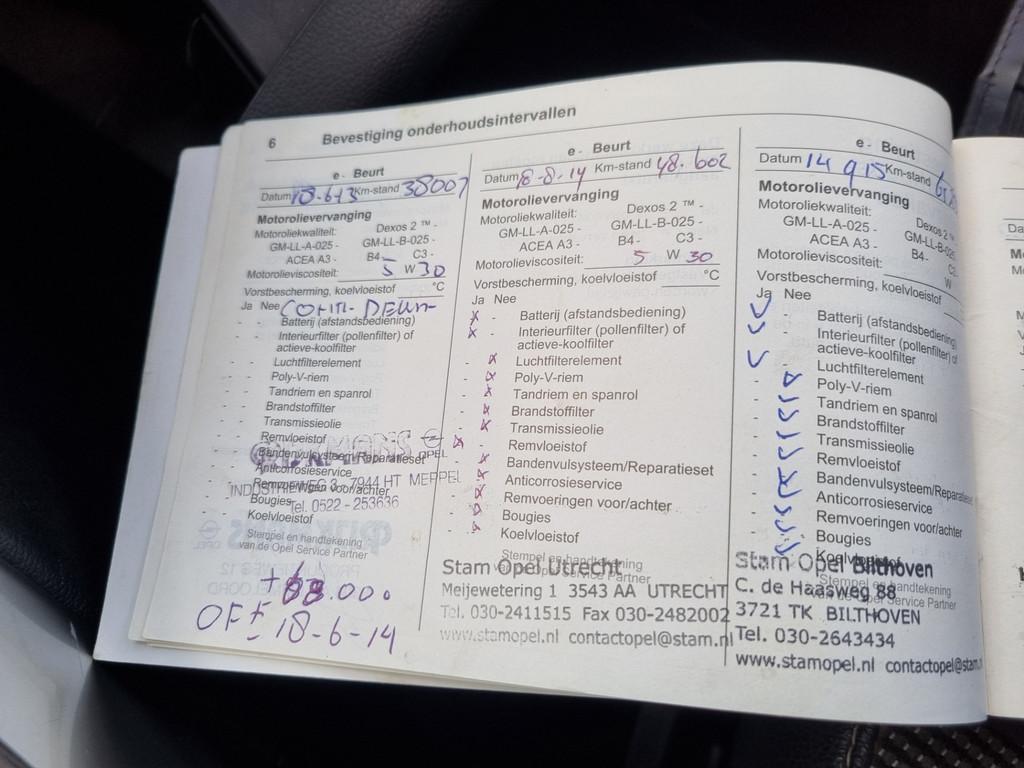 6 Bevestiging onderhoudsintervallen
e - Beurt
Datum 18-6-13 Km-stand 38007
Motorolievervanging
Motoroliekwaliteit: Dexos 2 ™ -
GM-LL-A-025 - GM-LL-B-025 -
ACEA A3 - B4- C3 -
Motorolieviscositeit: 5 W 30
Vorstbescherming, koelvloeistof °C
Ja Nee
- - Batterij (afstandsbediening)
- - Interieurfilter (pollenfilter) of
actieve-koolfilter
- - Luchtfilterelement
- - Poly-V-riem
- - Tandriem en spanrol
- - Brandstoffilter
- - Transmissieolie
- - Remvloeistof
- - Bandenvulsysteem/Reparatieset
- - Anticorrosieservice
- - Remvoeringen voor/achter
- - Bougies
- - Koelvloeistof
OPEL
INDUSTRIEWEG 3 - 7944 HT MEPPEL
Tel. 0522 - 253636
Stempel en handtekening
van de Opel Service Partner
OF ± 18-6-14
e - Beurt
Datum 8-8-14 Km-stand 48.602
Motorolievervanging
Motoroliekwaliteit: Dexos 2 ™ -
GM-LL-A-025 - GM-LL-B-025 -
ACEA A3 - B4- C3 -
Motorolieviscositeit: 5 W 30
Vorstbescherming, koelvloeistof °C
Ja Nee
x - Batterij (afstandsbediening)
x - Interieurfilter (pollenfilter) of
actieve-koolfilter
- x Luchtfilterelement
- x Poly-V-riem
- x Tandriem en spanrol
- x Brandstoffilter
- x Transmissieolie
x - Remvloeistof
- x Bandenvulsysteem/Reparatieset
- x Anticorrosieservice
- x Remvoeringen voor/achter
- x Bougies
- x Koelvloeistof
Stempel en handtekening
van de Opel Service Partner
Stam Opel Utrecht
Meijewetering 1 3543 AA UTRECHT
Tel. 030-2411515 Fax 030-2482002
www.stamopel.nl contactopel@stam.nl
e - Beurt
Datum 14 9 15 Km-stand
Motorolievervanging
Motoroliekwaliteit: Dexos 2 ™ -
GM-LL-A-025 - GM-LL-B-025
ACEA A3 - B4- C3
Motorolieviscositeit: W
Vorstbescherming, koelvloeistof
Ja Nee
Batterij (afstandsbediening)
Interieurfilter (pollenfilter) of
actieve-koolfilter
Luchtfilterelement
Poly-V-riem
Tandriem en spanrol
Brandstoffilter
Transmissieolie
Remvloeistof
Bandenvulsysteem/Reparatieset
Anticorrosieservice
Remvoeringen voor/achter
Bougies
Koelvloeistof
Stempel en handtekening
van de Opel Service Partner
Stam Opel Bilthoven
C. de Haasweg 88
3721 TK BILTHOVEN
Tel. 030-2643434
www.stamopel.nl contactopel@stam.n